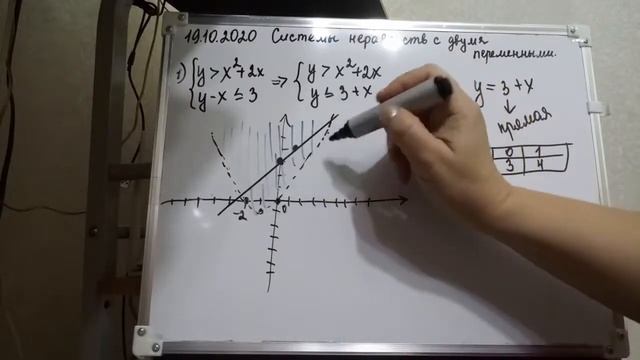 19.10.2020 Системы неравенств с двумя
переменными.
1) { y > x² + 2x => { y > x² + 2x
y - x ≤ 3 y ≤ 3 + x
y = 3 + x
↓
прямая
0 1
3 4
-2 0